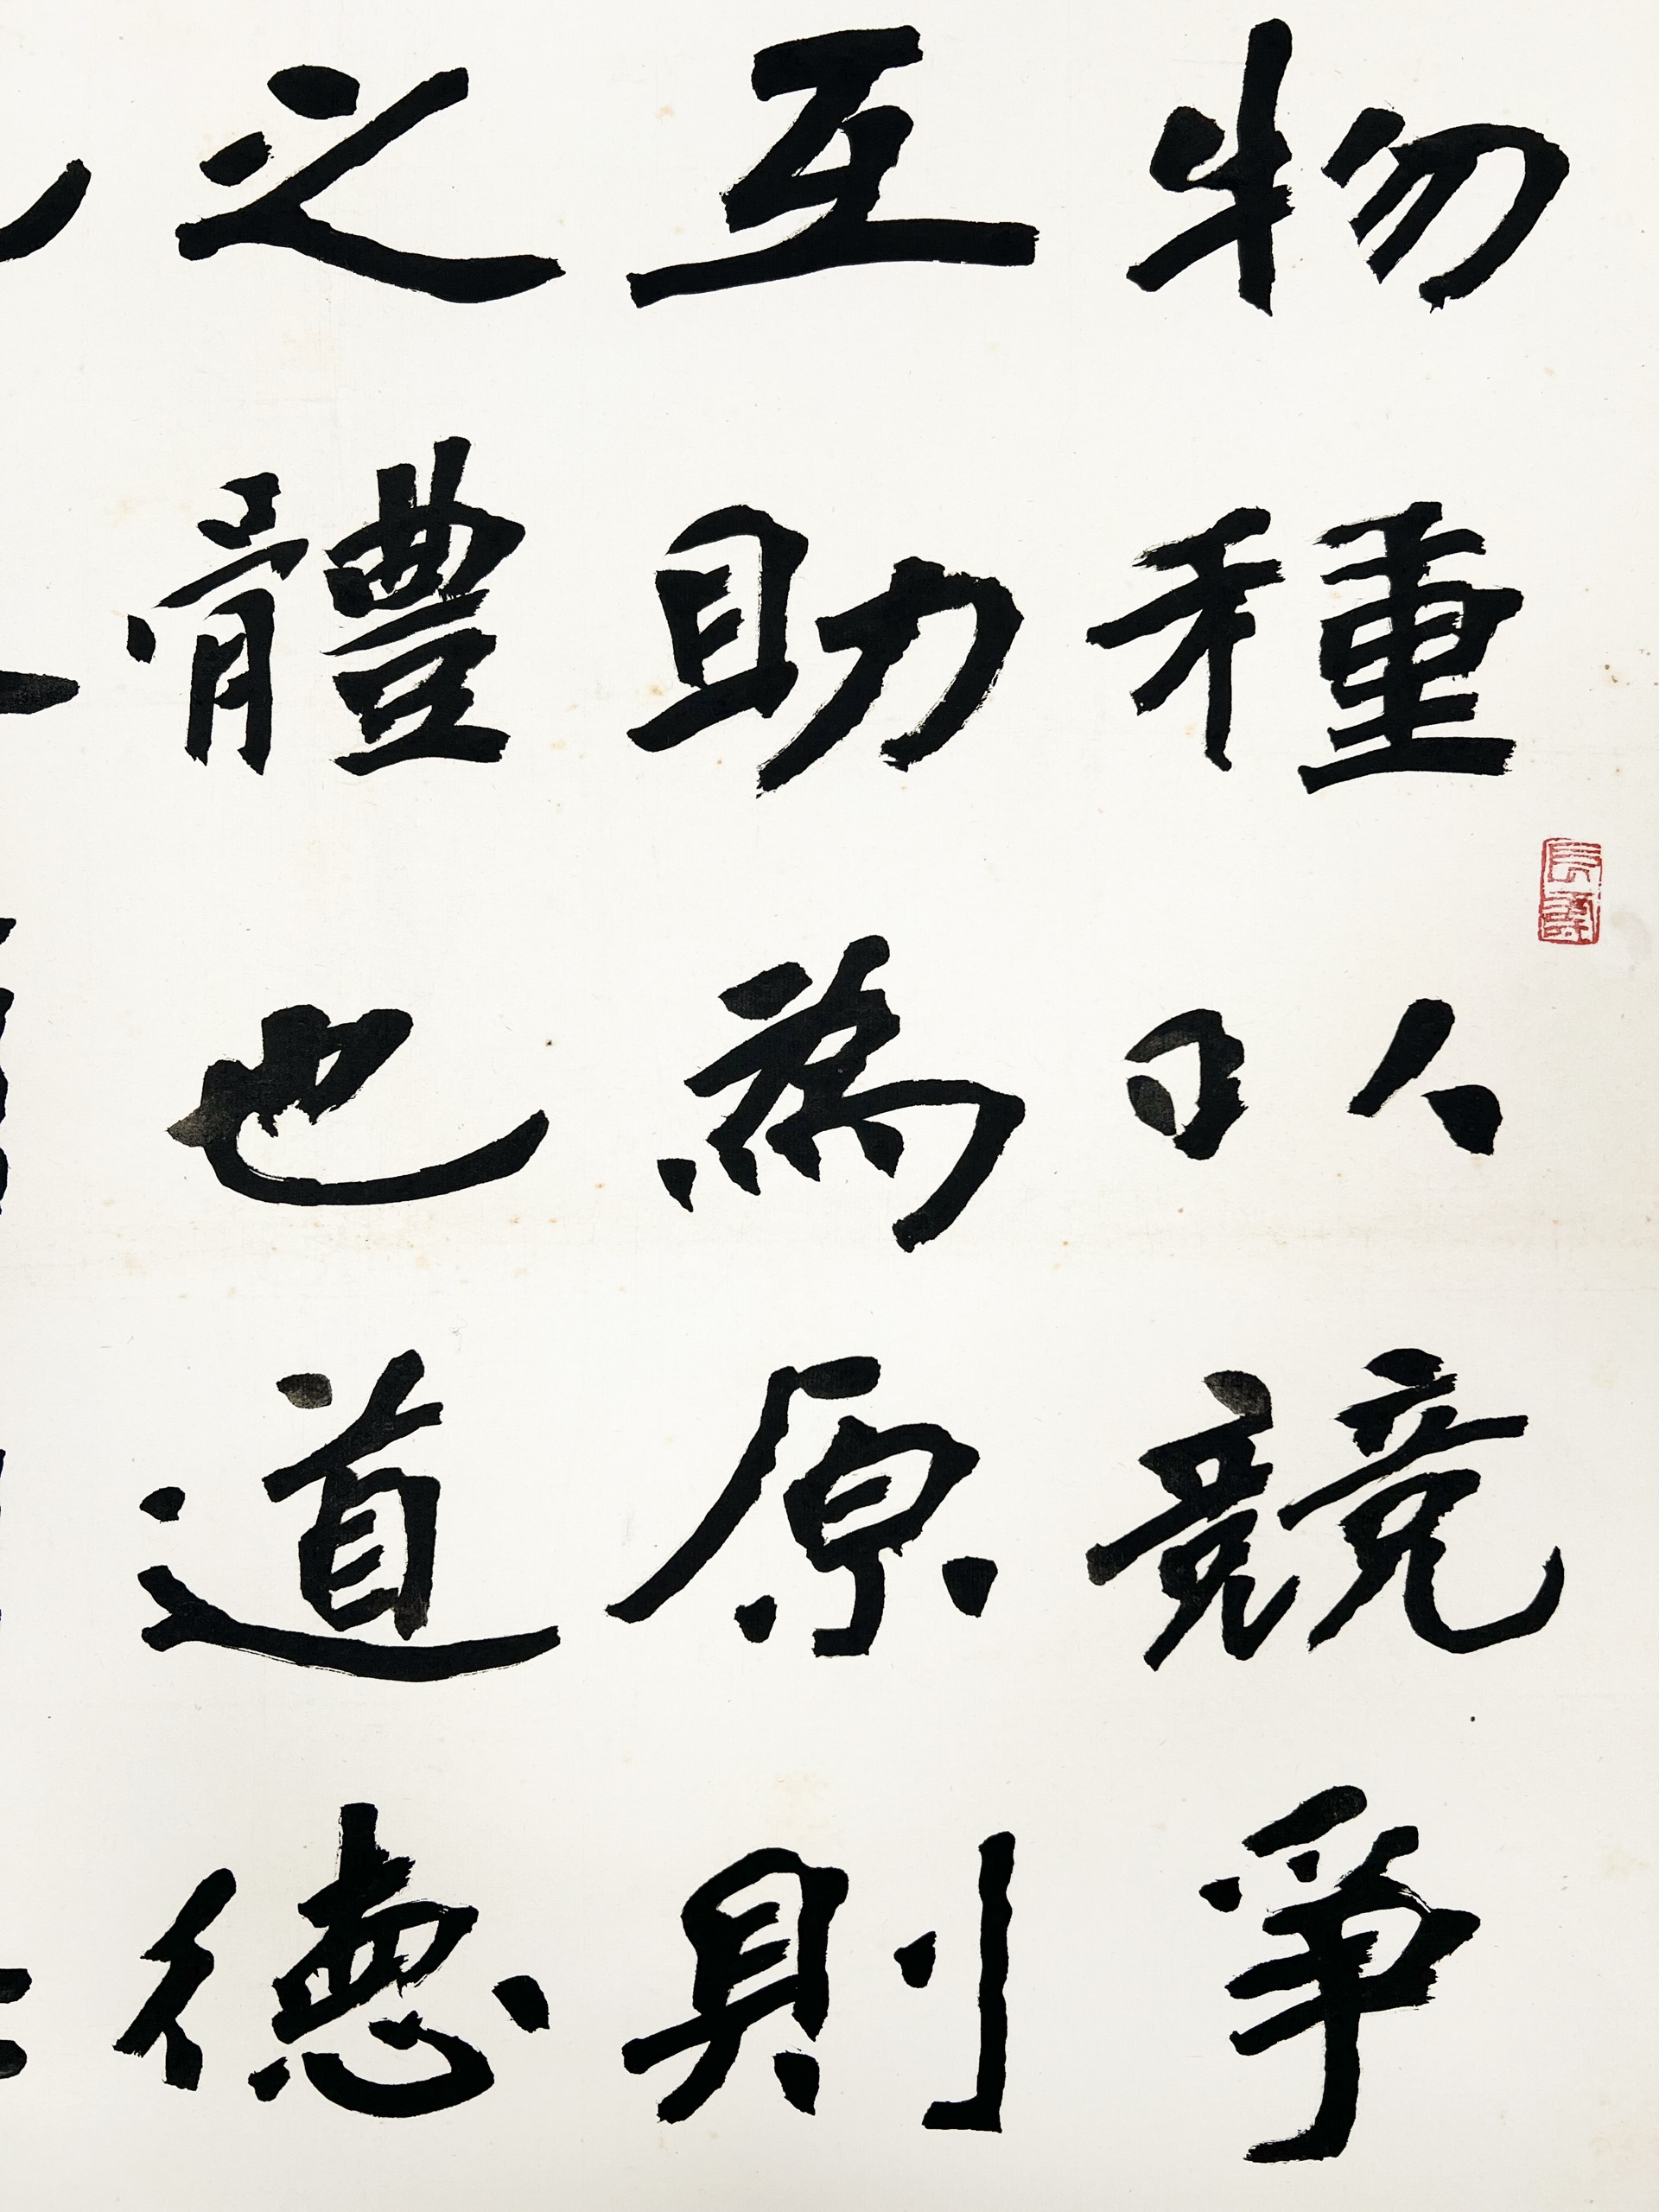 物種以競爭
互助為原則
之體也道德